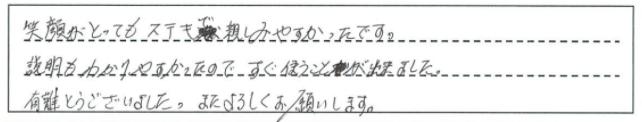 笑顔がとってもステキで親しみやすかったです。
説明もわかりやすかったので すぐ使うことが出来ました。
有難とうございました。またよろしくお願いします。